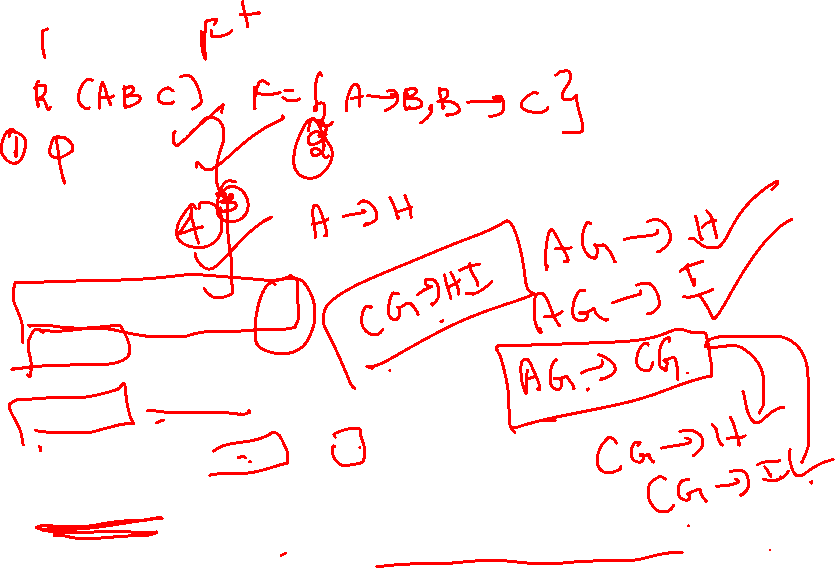 F+
R (ABC) F={ A→B, B→C}
① φ ②
④ ③ A→H
AG→H
CG→HI AG→I
AG→CG
CG→H
CG→I